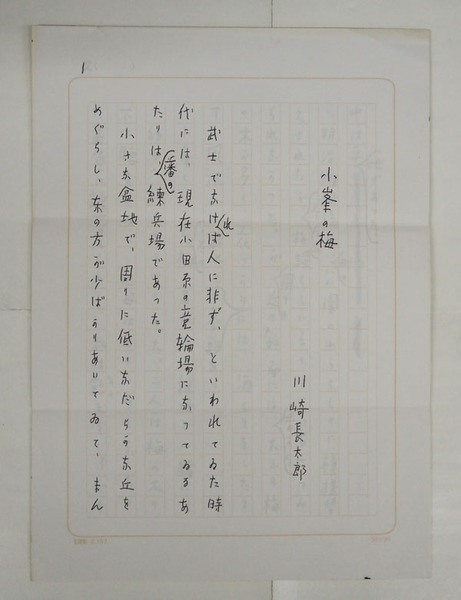 1
小峯の梅
川崎長太郎
武士でなければ人に非ず、といわれてゐた時
代には、現在小田原の競輪場になつてゐるあ
たりは、藩の練兵場であった。
小さな盆地で、周りに低いなだらかな丘を
めぐらし、東の方が少ばかりあいてゐて、まん